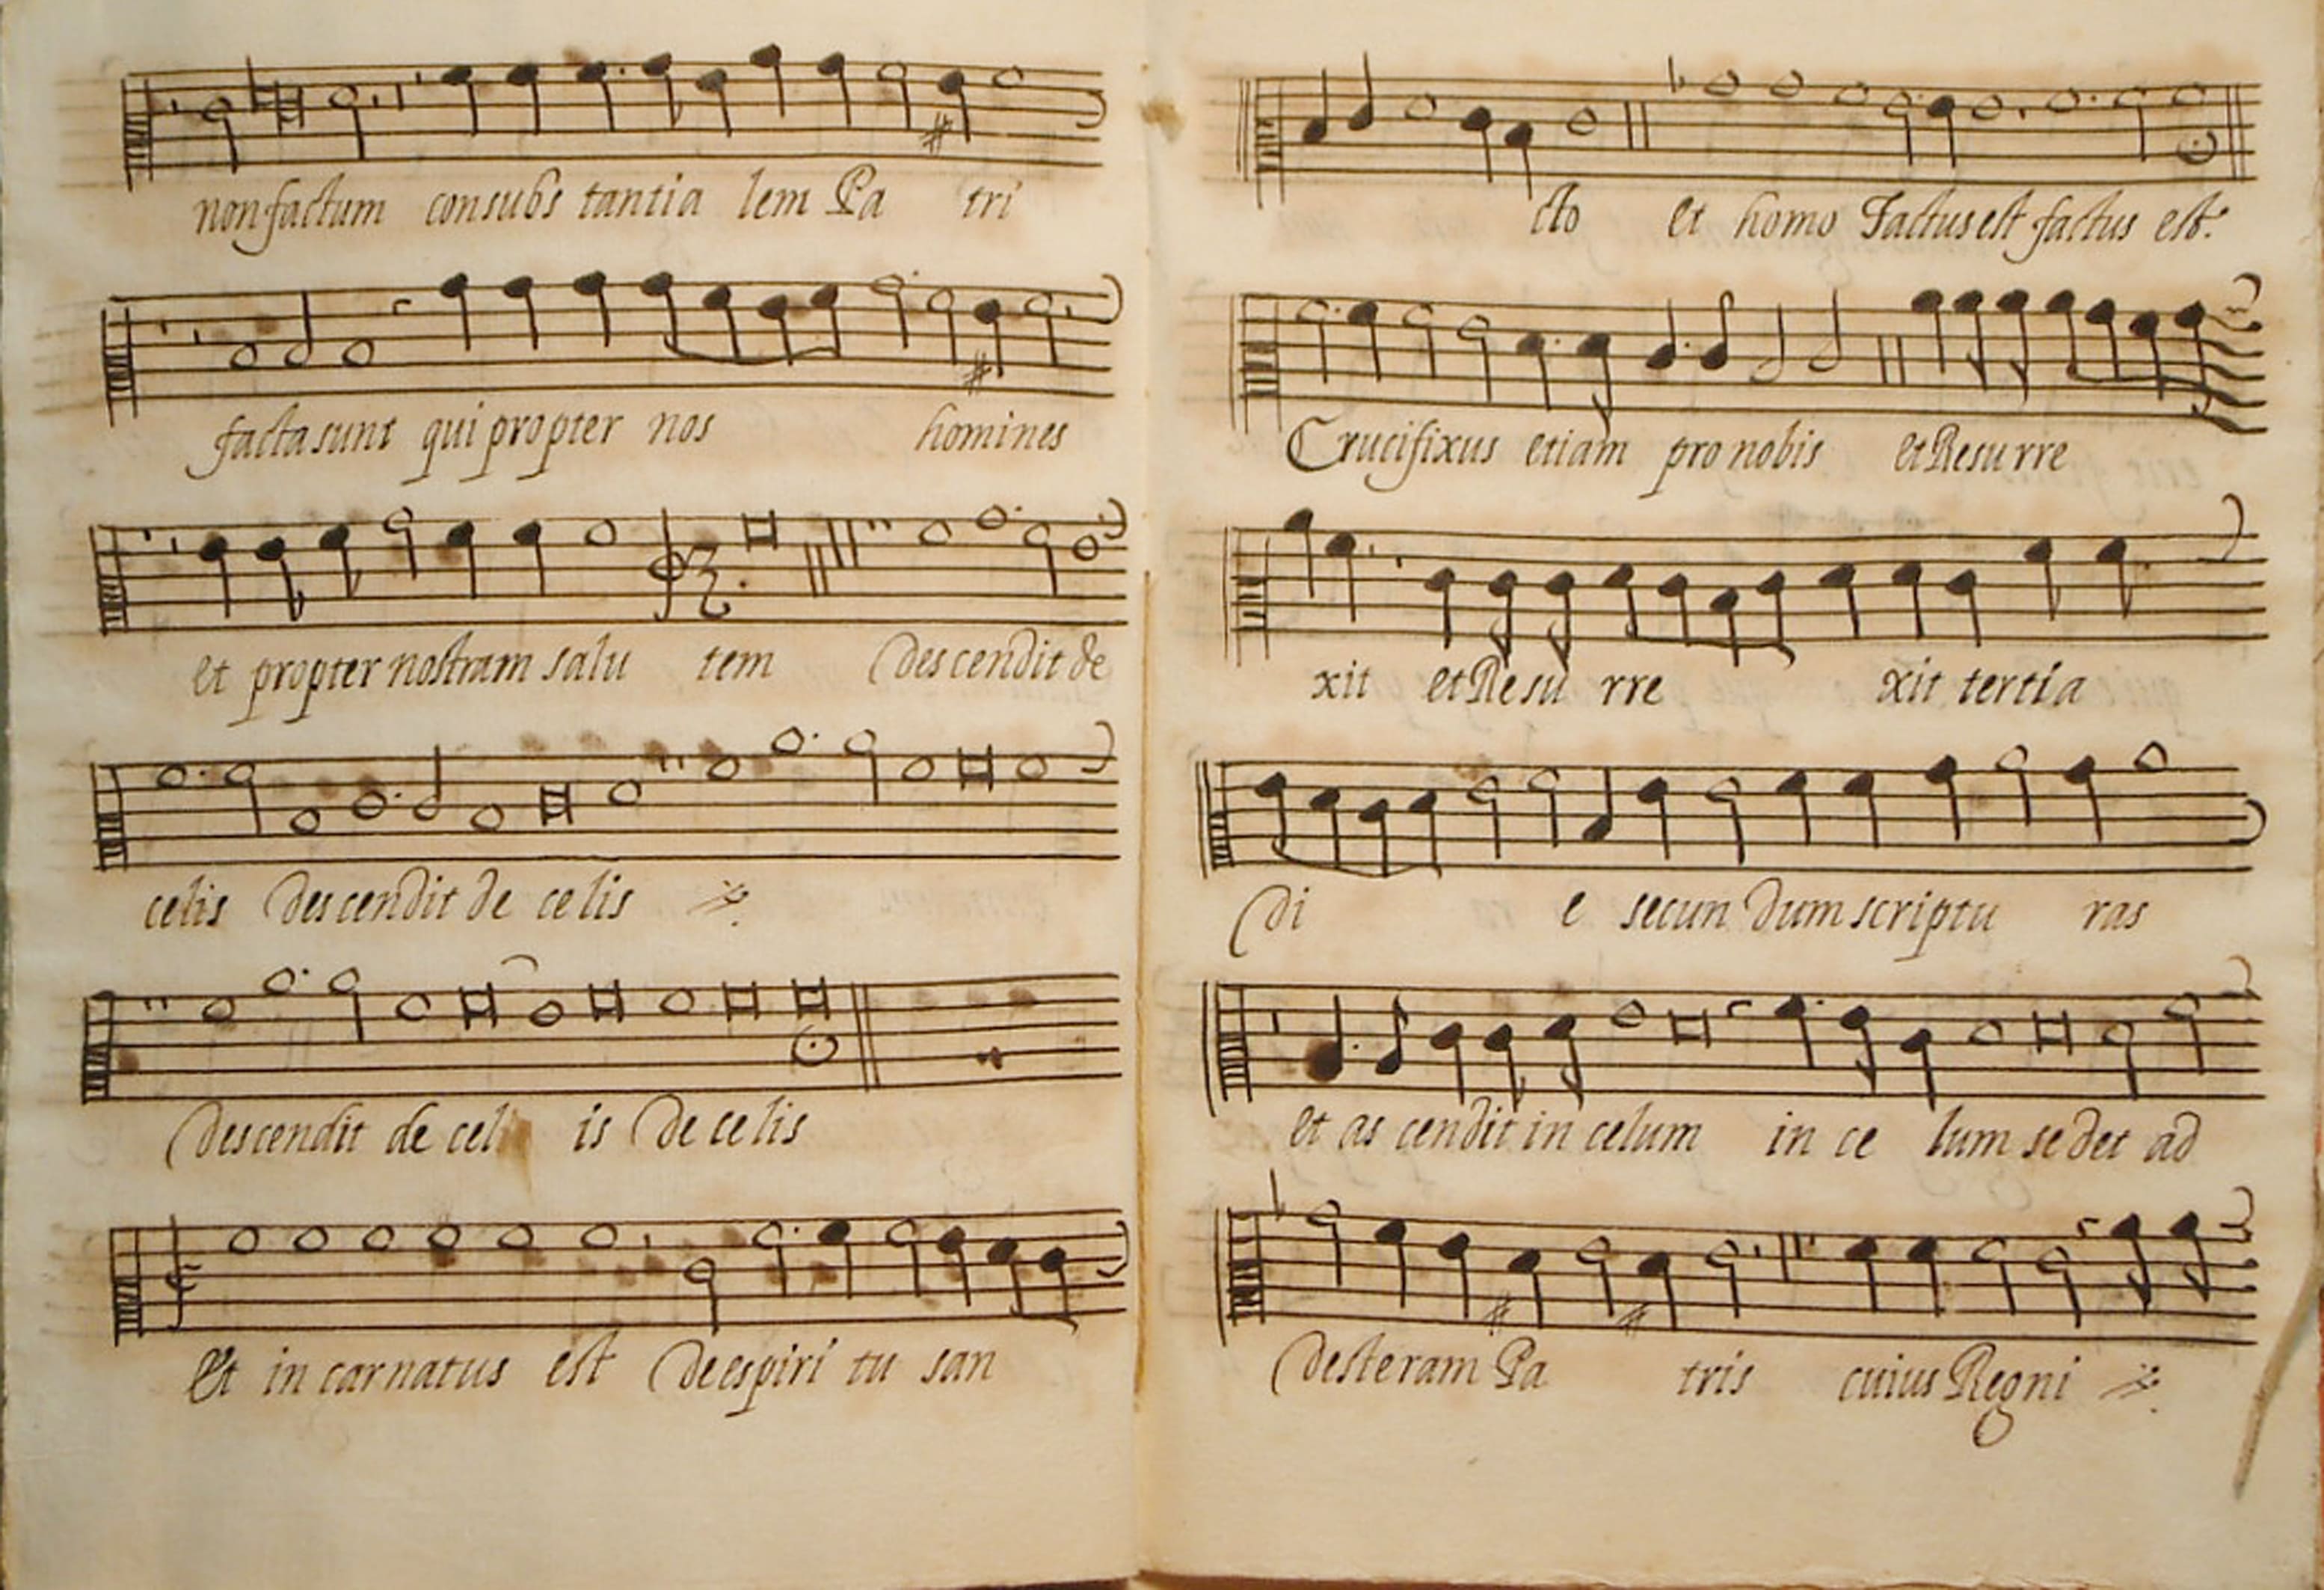 non factum consubs tantia lem Pa tri
facta sunt qui propter nos homines
et propter nostram salu tem descendit de
celis descendit de celis
descendit de cel is de celis
Et in carnatus est de espiri tu san
cto et homo factus est factus est.
Crucifixus etiam pro nobis et Resu rre
xit et Resu rre xit tertia
di e secun dum scriptu ras
et as cendit in celum in ce lum sedet ad
desteram Pa tris cuius Regni